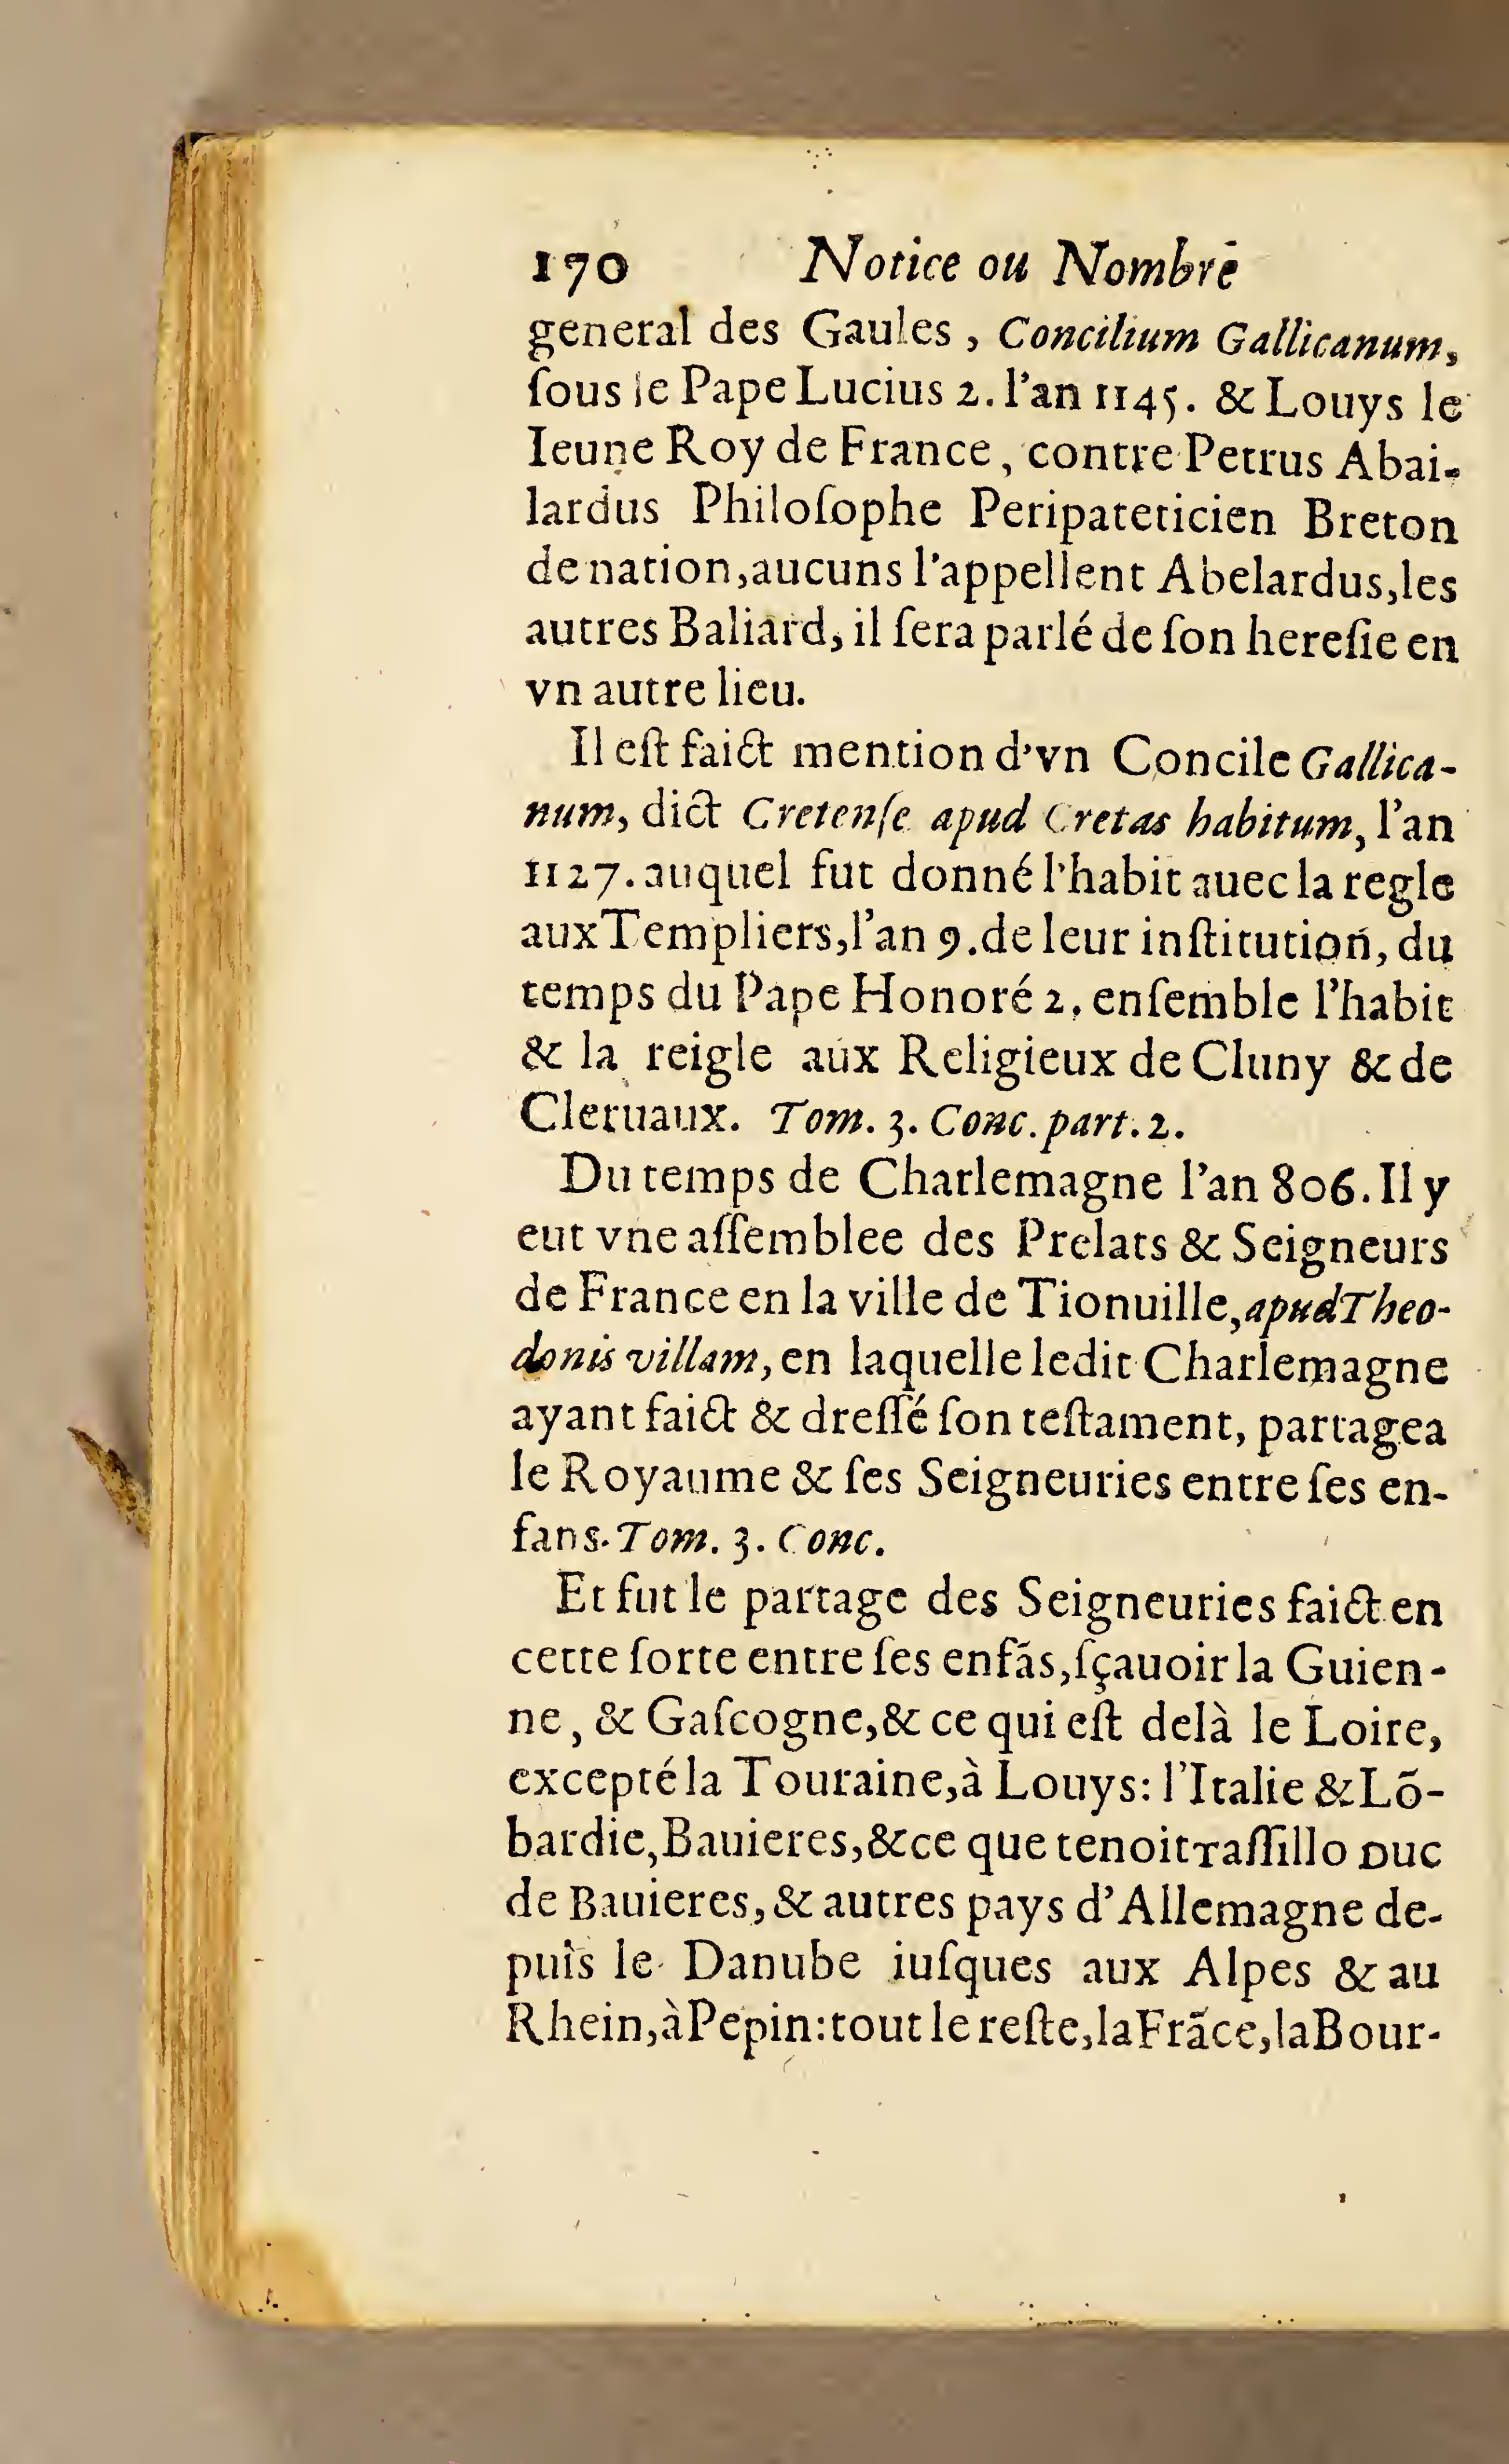 170 Notice ou Nombre
general des Gaules , Concilium Gallicanum,
ſous le Pape Lucius 2. l'an 1145. & Louys le
Ieune Roy de France, contre Petrus Abai-
lardus Philoſophe Peripateticien Breton
de nation,aucuns l'appellent Abelardus,les
autres Baliard, il ſera parlé de ſon hereſie en
vn autre lieu.
Il eſt faict mention d'vn Concile Gallica-
num, dict Cretenſe apud Cretas habitum, l'an
1127. auquel fut donné l'habit auec la regle
aux Templiers,l'an 9.de leur inſtitution, du
temps du Pape Honoré 2, enſemble l'habit
& la reigle aux Religieux de Cluny & de
Cleruaux. Tom. 3. Conc. part. 2.
Du temps de Charlemagne l'an 806. Il y
eut vne aſſemblee des Prelats & Seigneurs
de France en la ville de Tionuille,apud Theo-
donis villam, en laquelle ledit Charlemagne
ayant faict & dreſſé ſon teſtament, partagea
le Royaume & ſes Seigneuries entre ſes en-
fans. Tom. 3. Conc.
Et fut le partage des Seigneuries faict en
cette ſorte entre ſes enfãs,ſçauoir la Guien-
ne, & Gaſcogne,& ce qui eſt delà le Loire,
excepté la Touraine,à Louys: l'Italie & Lõ-
bardie,Bauieres,&ce que tenoit Taſſillo Duc
de Bauieres,& autres pays d'Allemagne de-
puis le Danube iuſques aux Alpes & au
Rhein,à Pepin: tout le reſte,la Frãce,la Bour-